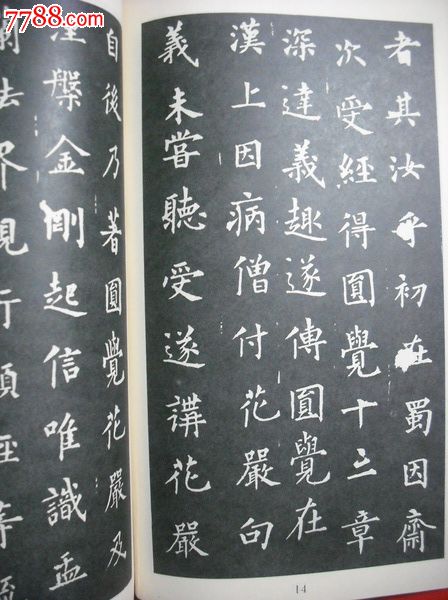 7788.com
者其汝乎初在蜀因齋
次受經得圓覺十三章
深達義趣遂傳圓覺在
漢上因病僧付花嚴句
義未嘗聽受遂講花嚴
自後乃著圓覺花嚴及
涅槃金剛起信唯識盂
蘭法界觀行願經等
14